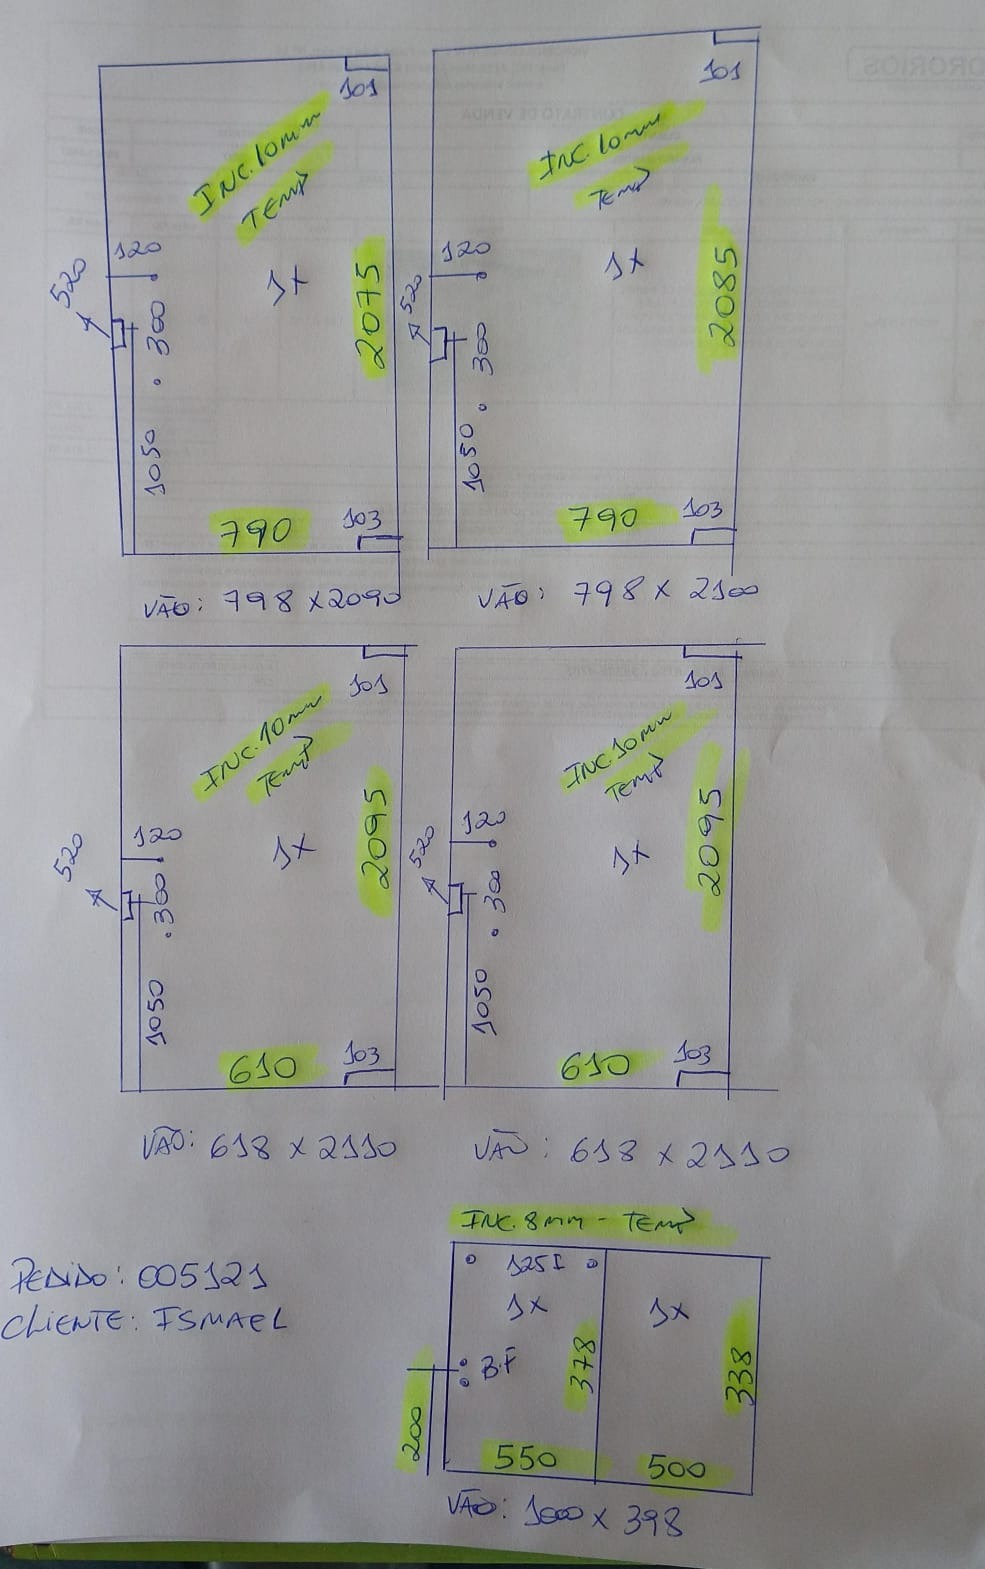 101
INC. 10mm
TEMP
120
1x
2075
520
300
1050
790
103
VÃO: 798 x 2090
101
INC. 10mm
TEMP
120
1x
2085
520
300
1050
790
103
VÃO: 798 x 2100
101
INC. 10mm
TEMP
120
1x
2095
520
300
1050
610
103
VÃO: 618 x 2110
101
INC. 10mm
TEMP
120
1x
2095
520
300
1050
610
103
VÃO: 618 x 2110
PEDIDO: 005121
CLIENTE: ISMAEL
INC. 8mm - TEMP
125I
1x
1x
B.F
378
338
200
550
500
VÃO: 1000 x 398
CONTRATO DE VENDA